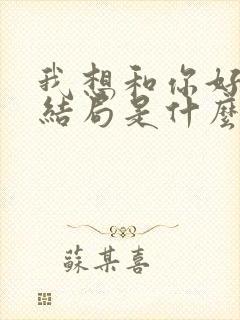 我想和你好
結局是什麼
蘇某喜